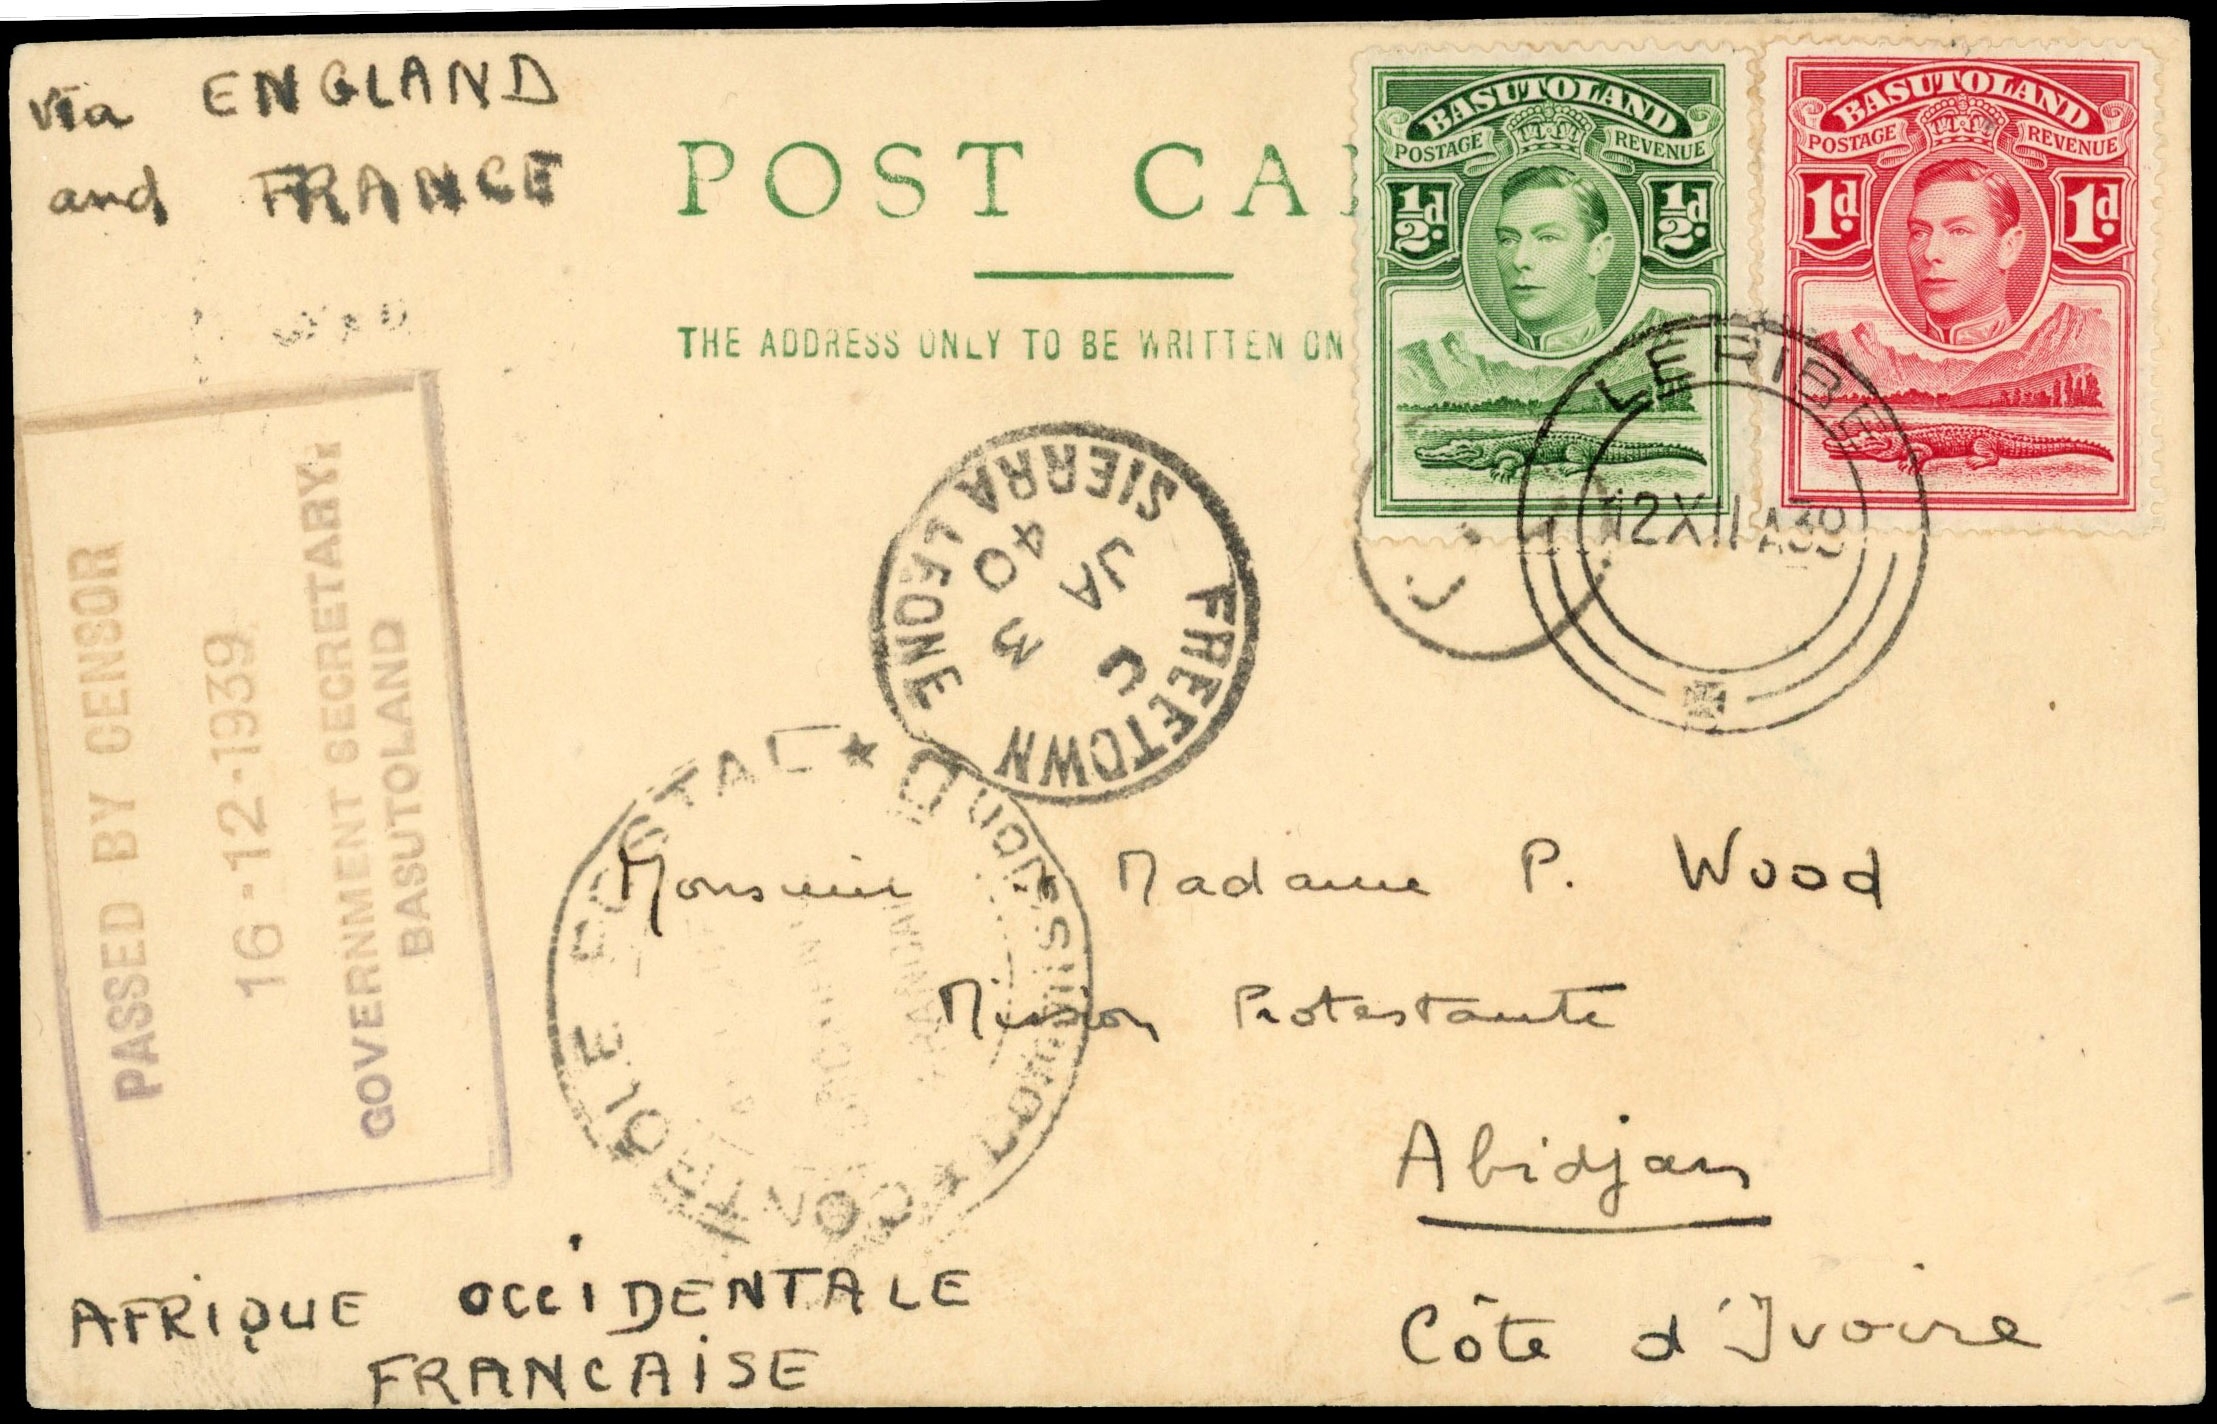 via ENGLAND
and FRANCE
POST CA
THE ADDRESS ONLY TO BE WRITTEN ON
BASUTOLAND
POSTAGE REVENUE
½d. ½d.
BASUTOLAND
POSTAGE REVENUE
1d. 1d.
LERIBE
12 XII A39
FREETOWN
SIERRA LEONE
C
3 JA
40
PASSED BY CENSOR
16-12-1939
GOVERNMENT SECRETARY,
BASUTOLAND
CONTROLE POSTAL
COMMISSION
Monsieur Madame P. Wood
Mission Protestante
Abidjan
Côte d'Ivoire
AFRIQUE OCCIDENTALE
FRANCAISE